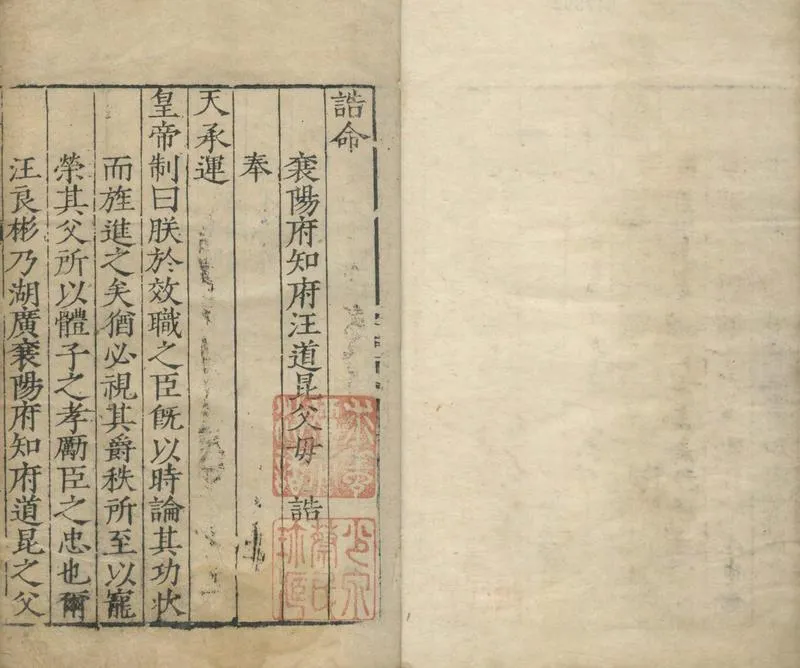 誥命
襄陽府知府汪道昆父母　誥
奉
天承運
皇帝制曰朕於效職之臣旣以時論其功狀
而旌進之矣猶必視其爵秩所至以寵
榮其父所以體子之孝勵臣之忠也爾
汪良彬乃湖廣襄陽府知府道昆之父